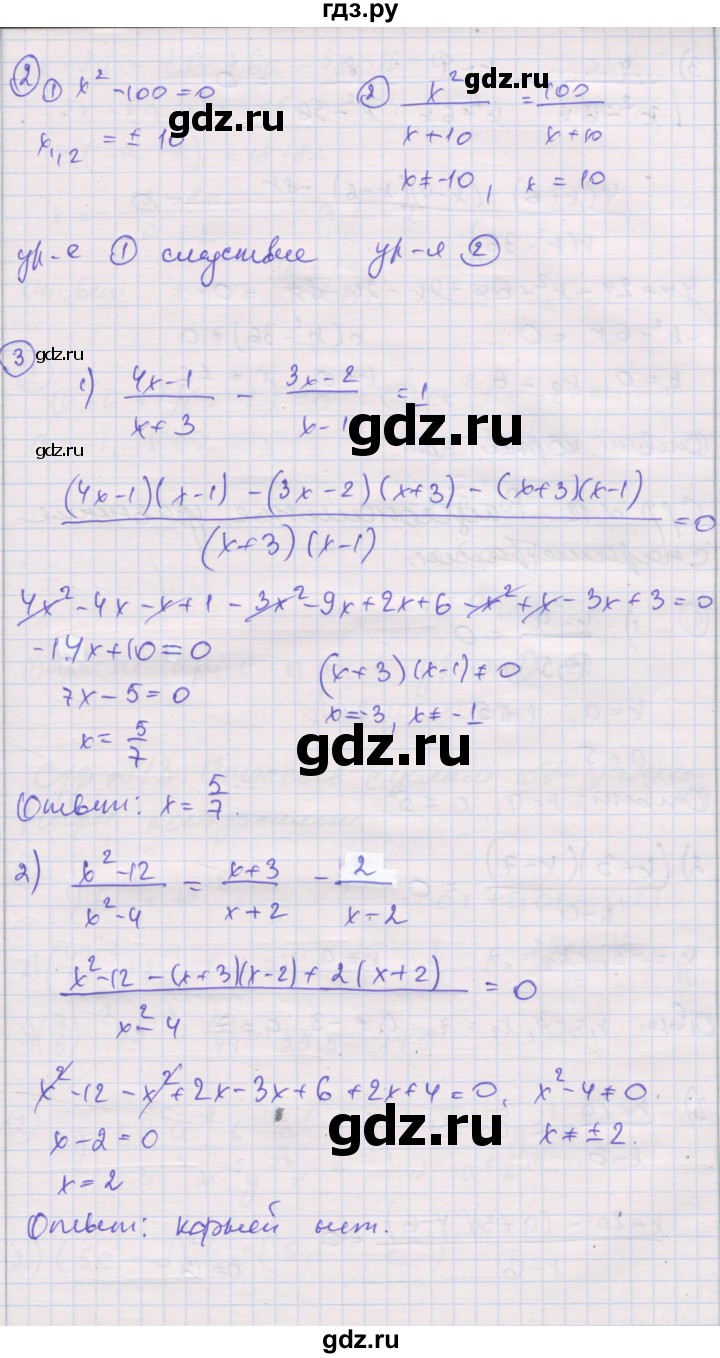 гдз.ру
② ① x² - 100 = 0   ② x²/(x+10) = 100/(x+10)
gdz.ru
x₁,₂ = ± 10   x ≠ -10, x = 10
gdz.ru
ур-е ① следствие ур-я ②
③ gdz.ru
1) (4x-1)/(x+3) - (3x-2)/(x-1) = 1
gdz.ru
gdz.ru
((4x-1)(x-1) - (3x-2)(x+3) - (x+3)(x-1))/((x+3)(x-1)) = 0
4x² - 4x - x + 1 - 3x² - 9x + 2x + 6 - x² + x - 3x + 3 = 0
-14x + 10 = 0   (x+3)(x-1) ≠ 0
7x - 5 = 0   x = -3, x ≠ -1
x = 5/7
gdz.ru
Ответ: x = 5/7.
2) (x²-12)/(x²-4) = (x+3)/(x+2) - 2/(x-2)
(x²-12 - (x+3)(x-2) + 2(x+2))/(x²-4) = 0
x² - 12 - x² + 2x - 3x + 6 + 2x + 4 = 0, x² - 4 ≠ 0.
gdz.ru
x - 2 = 0   x ≠ ± 2.
x = 2
Ответ: корней нет.
gdz.ru
gdz.ru